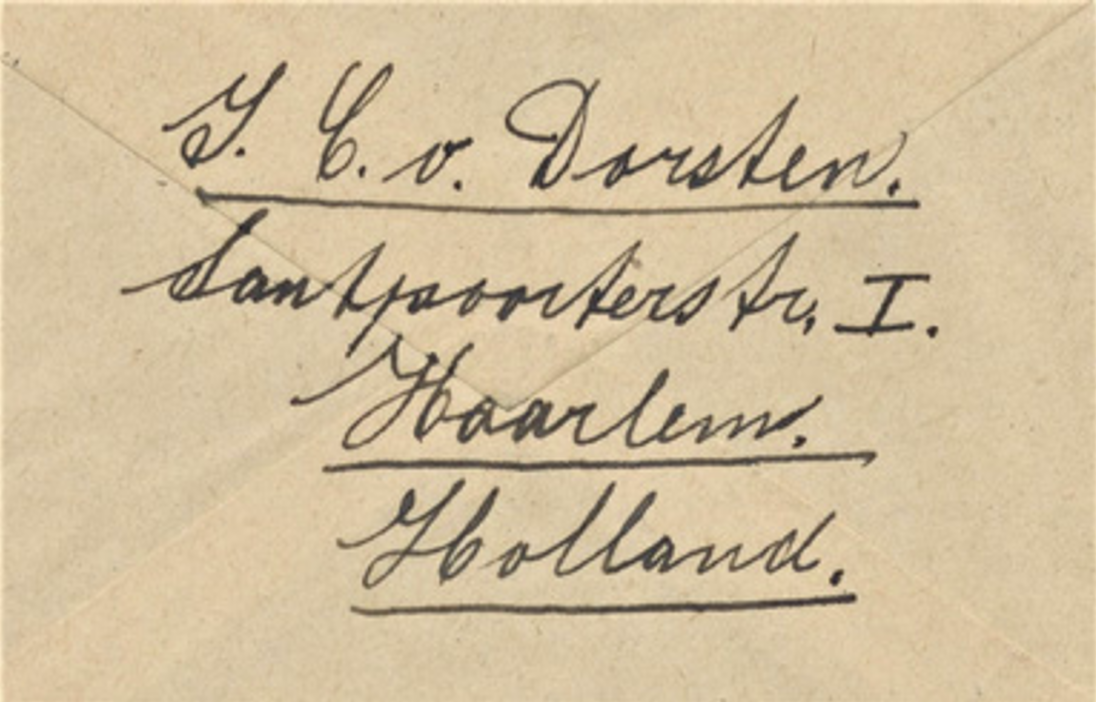 J. C. v. Dorsten.
Santpoorterstr. I.
Haarlem.
Holland.